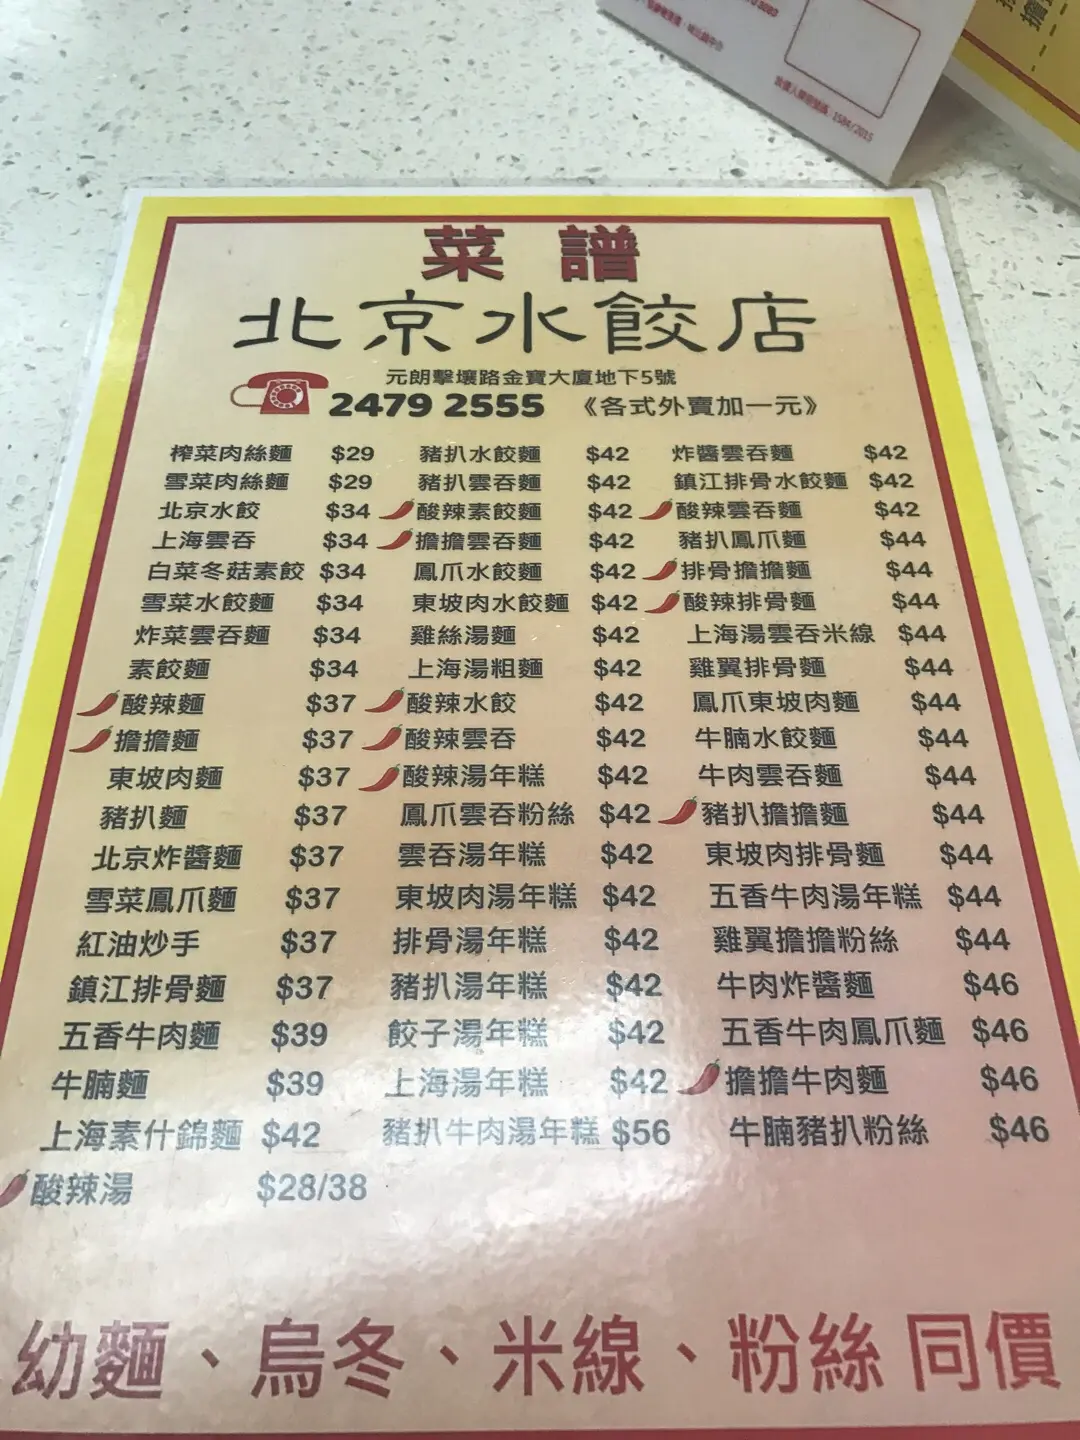 菜譜
北京水餃店
元朗擊壤路金寶大廈地下5號
2479 2555 《各式外賣加一元》
榨菜肉絲麵 $29 豬扒水餃麵 $42 炸醬雲吞麵 $42
雪菜肉絲麵 $29 豬扒雲吞麵 $42 鎮江排骨水餃麵 $42
北京水餃 $34 酸辣素餃麵 $42 酸辣雲吞麵 $42
上海雲吞 $34 擔擔雲吞麵 $42 豬扒鳳爪麵 $44
白菜冬菇素餃 $34 鳳爪水餃麵 $42 排骨擔擔麵 $44
雪菜水餃麵 $34 東坡肉水餃麵 $42 酸辣排骨麵 $44
炸菜雲吞麵 $34 雞絲湯麵 $42 上海湯雲吞米線 $44
素餃麵 $34 上海湯粗麵 $42 雞翼排骨麵 $44
酸辣麵 $37 酸辣水餃 $42 鳳爪東坡肉麵 $44
擔擔麵 $37 酸辣雲吞 $42 牛腩水餃麵 $44
東坡肉麵 $37 酸辣湯年糕 $42 牛肉雲吞麵 $44
豬扒麵 $37 鳳爪雲吞粉絲 $42 豬扒擔擔麵 $44
北京炸醬麵 $37 雲吞湯年糕 $42 東坡肉排骨麵 $44
雪菜鳳爪麵 $37 東坡肉湯年糕 $42 五香牛肉湯年糕 $44
紅油炒手 $37 排骨湯年糕 $42 雞翼擔擔粉絲 $44
鎮江排骨麵 $37 豬扒湯年糕 $42 牛肉炸醬麵 $46
五香牛肉麵 $39 餃子湯年糕 $42 五香牛肉鳳爪麵 $46
牛腩麵 $39 上海湯年糕 $42 擔擔牛肉麵 $46
上海素什錦麵 $42 豬扒牛肉湯年糕 $56 牛腩豬扒粉絲 $46
酸辣湯 $28/38
幼麵、烏冬、米線、粉絲 同價